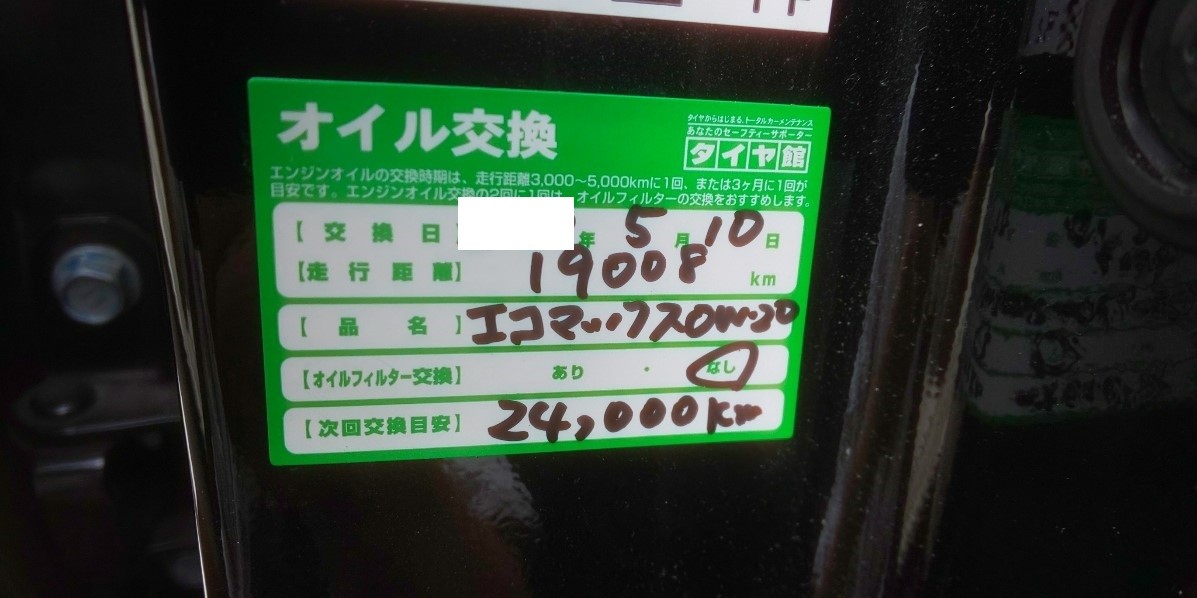 オイル交換
タイヤからはじまる、トータルカーメンテナンス
あなたのセーフティーサポーター
タイヤ館
エンジンオイルの交換時期は、走行距離3,000〜5,000kmに1回、または3ヶ月に1回が
目安です。エンジンオイル交換の2回に1回は、オイルフィルターの交換をおすすめします。
【交換日】 年 5 月 10 日
【走行距離】 19008 km
【品名】 エコマックス0W-20
【オイルフィルター交換】 あり ・ なし
【次回交換目安】 24,000km